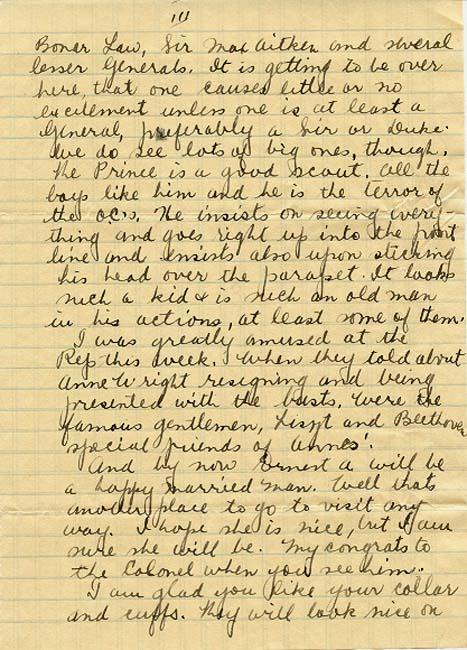 III
Bonar Law, Sir Max Aitken and several
lesser Generals. It is getting to be over
here, that one causes little or no
excitement unless one is at least a
General, preferably a Sir or Duke.
We do see lots of big ones, though.
The Prince is a good scout. All the
boys like him and he is the terror of
the OC's. He insists on seeing every-
thing and goes right up into the front
line and insists also upon sticking
his head over the parapet. It looks
such a kid & is such an old man
in his actions, at least some of them.
I was greatly amused at the
Rep this week. When they told about
Anne Wright resigning and being
presented with the busts. Were the
famous gentlemen, Liszt and Beethoven
special friends of Annes'.
And by now Ernest A will be
a happy married man. Well thats
another place to go to visit any
way. I hope she is nice, but I am
sure she will be. My congrats to
the Colonel when you see him.
I am glad you like your collar
and cuffs. They will look nice on